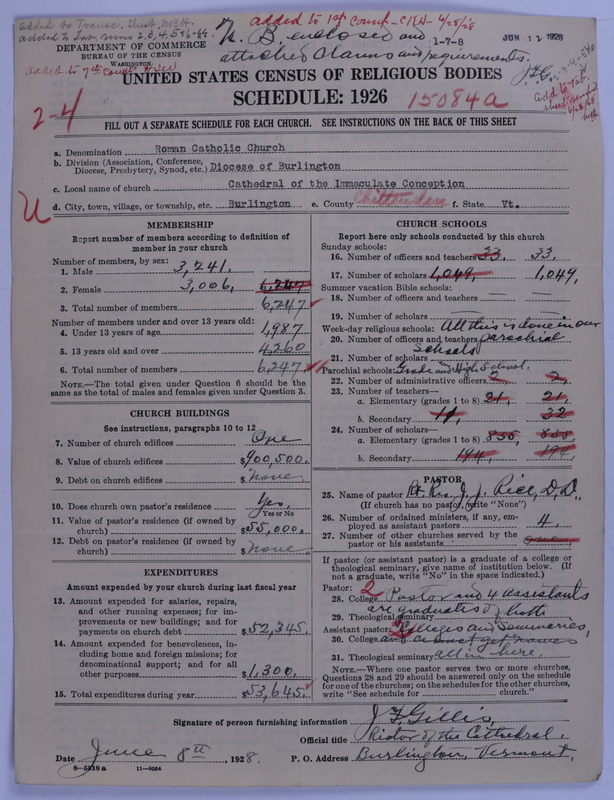 added to Transc. Sheet
added to Tab.
added to 1st Count - CHH - 6/28/28
N. B. enclosed and
1-7-8
JUN 12 1928
attached claims and requirements.
DEPARTMENT OF COMMERCE
BUREAU OF THE CENSUS
WASHINGTON
added to 7th Count
UNITED STATES CENSUS OF RELIGIOUS BODIES
SCHEDULE: 1926
15084a
2-4
FILL OUT A SEPARATE SCHEDULE FOR EACH CHURCH. SEE INSTRUCTIONS ON THE BACK OF THIS SHEET
a. Denomination Roman Catholic Church
b. Division (Association, Conference, Diocese, Presbytery, Synod, etc.) Diocese of Burlington
c. Local name of church Cathedral of the Immaculate Conception
U
d. City, town, village, or township, etc. Burlington e. County Chittenden f. State Vt.
MEMBERSHIP
Report number of members according to definition of
member in your church
Number of members, by sex:
1. Male 3,241.
2. Female 3,006, 6,247
3. Total number of members 6,247
Number of members under and over 13 years old:
4. Under 13 years of age 1,987
5. 13 years old and over 4,260
6. Total number of members 6,247
NOTE.—The total given under Question 6 should be the
same as the total of males and females given under Question 3.
CHURCH BUILDINGS
See instructions, paragraphs 10 to 12
7. Number of church edifices One
8. Value of church edifices $900,500.
9. Debt on church edifices $ None
10. Does church own pastor's residence? Yes,
Yes or No
11. Value of pastor's residence (if owned by
church) $55,000.
12. Debt on pastor's residence (if owned by
church) $ None
EXPENDITURES
Amount expended by your church during last fiscal year
13. Amount expended for salaries, repairs,
and other running expenses; for im-
provements or new buildings; and for
payments on church debt $52,345.
14. Amount expended for benevolences, in-
cluding home and foreign missions; for
denominational support; and for all
other purposes $1,300.
15. Total expenditures during year $53,645.
CHURCH SCHOOLS
Report here only schools conducted by this church
Sunday schools:
16. Number of officers and teachers 33. 33.
17. Number of scholars 1,049, 1,049,
Summer vacation Bible schools:
18. Number of officers and teachers —
19. Number of scholars —
Week-day religious schools: All this is done in our
20. Number of officers and teachers parochial
21. Number of scholars schools
Parochial schools: Grade and High School.
22. Number of administrative officers 2, 2,
23. Number of teachers—
a. Elementary (grades 1 to 8) 21, 21,
b. Secondary 11, 22
24. Number of scholars—
a. Elementary (grades 1 to 8)
b. Secondary 194, 194
PASTOR
25. Name of pastor Rt. Rev. J. J. Rice, D.D.,
(If church has no pastor, write "None")
26. Number of ordained ministers, if any, em-
ployed as assistant pastors 4.
27. Number of other churches served by the
pastor or his assistants one,
If pastor (or assistant pastor) is a graduate of a college or
theological seminary, give name of institution below. (If
not a graduate, write "No" in the space indicated.)
Pastor: 2
28. College Pastor and 4 assistants
are graduates of both
29. Theological seminary
Assistant pastor: Colleges and seminaries,
30. College and cannot get names
31. Theological seminary all in here.
NOTE.—Where one pastor serves two or more churches,
Questions 28 and 29 should be answered only on the schedule
for one of the churches; on the schedules for the other churches,
write "See schedule for church."
Signature of person furnishing information J. F. Gillis,
Official title Rector of the Cathedral,
Date June 8th, 1928. P. O. Address Burlington, Vermont,
8—5318 a 11—9084